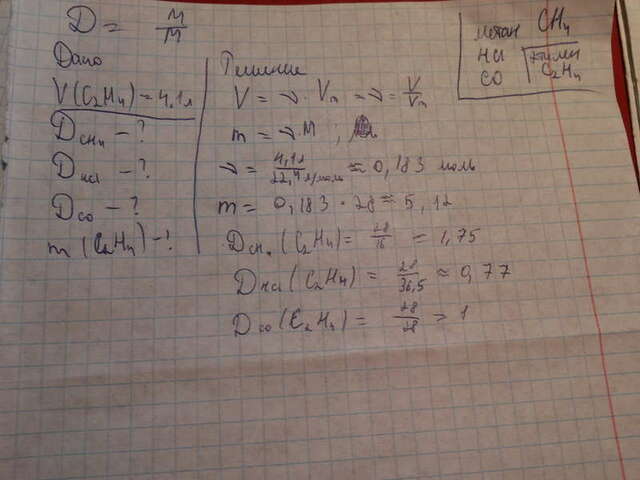 D = M/M
метан CH4
HCl
CO
этилен C2H4
Дано
V(C2H4) = 4,1л
D CH4 - ?
D HCl - ?
D CO - ?
m (C2H4) - ?
Решение
V = ν · Vm => ν = V/Vm
m = ν · M ;
ν = 4,1л/22,4 л/моль ≈ 0,183 моль
m = 0,183 · 28 ≈ 5,12
D CH4 (C2H4) = 28/16 = 1,75
D HCl (C2H4) = 28/36,5 ≈ 0,77
D CO (C2H4) = 28/28 = 1